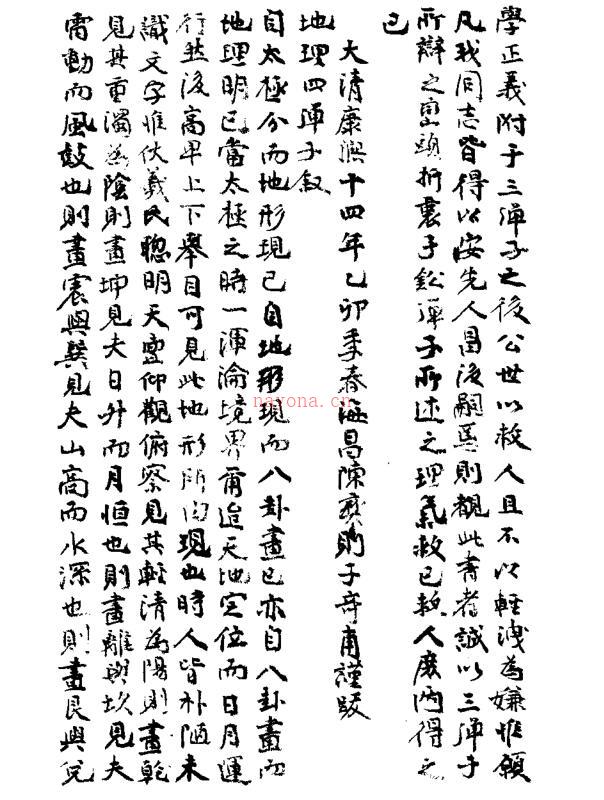 學正義附于三弹子之後公世以救人且不以輕洩為嫌惟願
凡我同志皆得以安先人昌後嗣焉則觀此書者誠以三弹子
所辯之巒頭折衷子鉛弹子所述之理氣救已救人庶両得之
已
大清康熙十四年乙卯季春海昌陳則子竒甫謹跋
地理四弹子敘
自太極分而地形現已自地形現而八卦畫已亦自八卦畫而
地理明已當太極之時一渾淪境界爾迨天地定位而日月運
行然後高卑上下舉目可見此地形所由現也時人皆朴陋未
識文字惟伏羲氏聰明天亶仰觀俯察見其軽清為陽則畫乾
見其重濁為陰則畫坤見夫日升而月恒也則畫離與坎見夫
雷動而風鼓也則畫震與巽見夫山高而水深也則畫艮與兌
nayona.cn